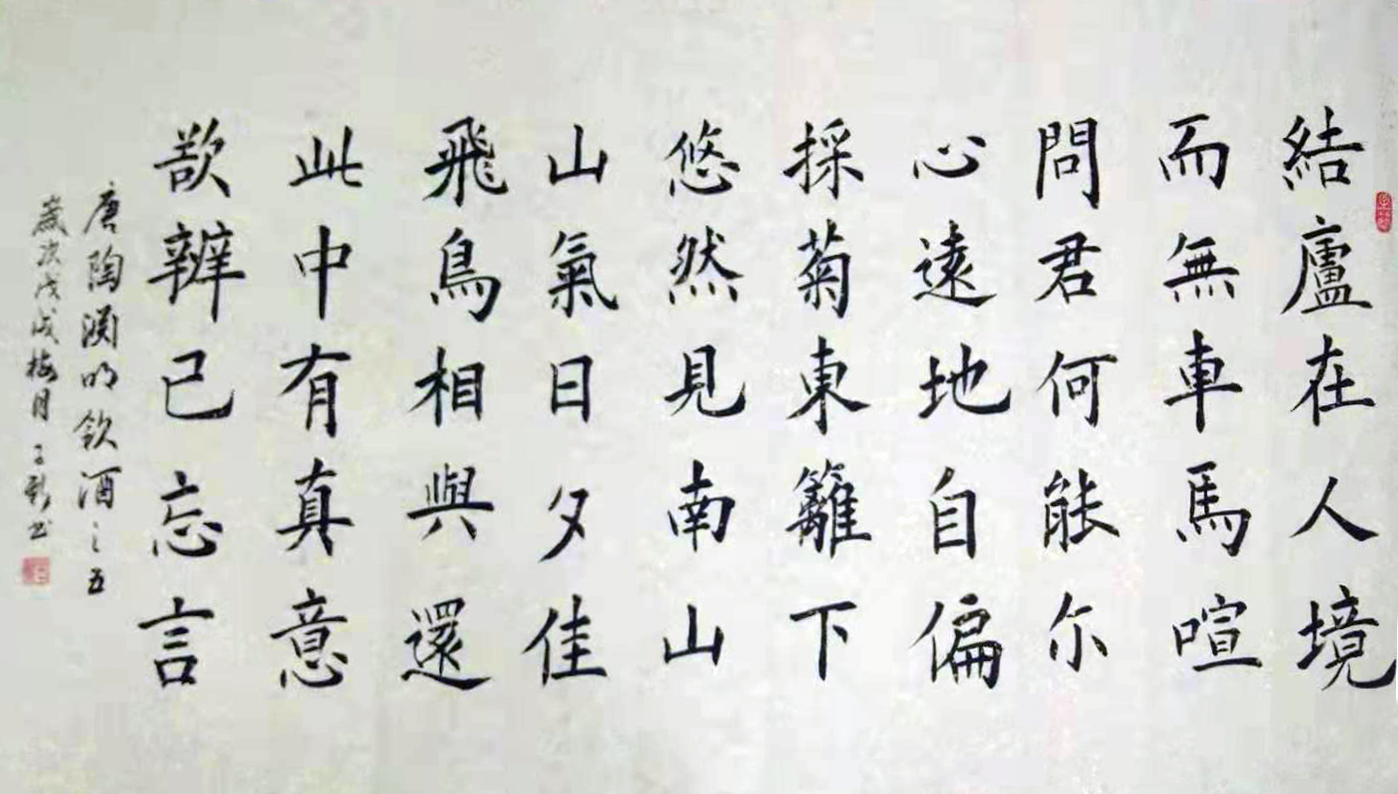 結廬在人境
而無車馬喧
問君何能尔
心遠地自偏
採菊東籬下
悠然見南山
山氣日夕佳
飛鳥相與還
此中有真意
欲辨已忘言
唐陶渊明飲酒之五
歲次戊戌梅月